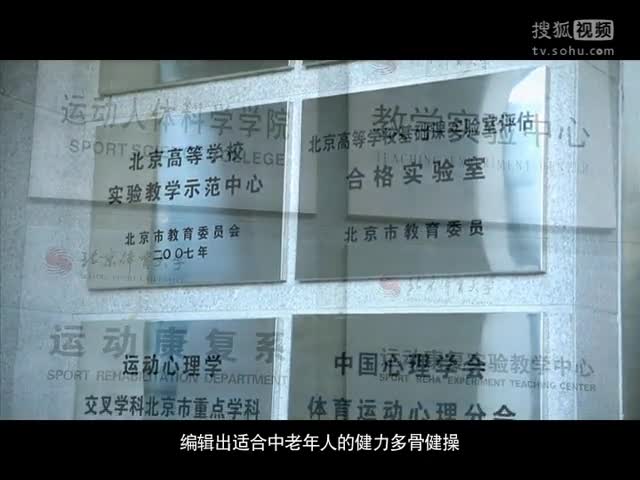 搜狐视频
tv.sohu.com
运动人体科学学院
SPORT SCIENCE COLLEGE
教学实验中心
TEACHING EXPERIMENT CENTER
北京高等学校
实验教学示范中心
北京市教育委员会
二〇〇七年
北京高等学校基础课实验室评估
合格实验室
北京市教育委员
北京体育大学
北京体育大学
运动康复系
SPORT REHABILITATION DEPARTMENT
运动康复实验教学中心
SPORT REHA EXPERIMENT TEACHING CENTER
运动心理学
交叉学科北京市重点学科
中国心理学会
体育运动心理分会
编辑出适合中老年人的健力多骨健操